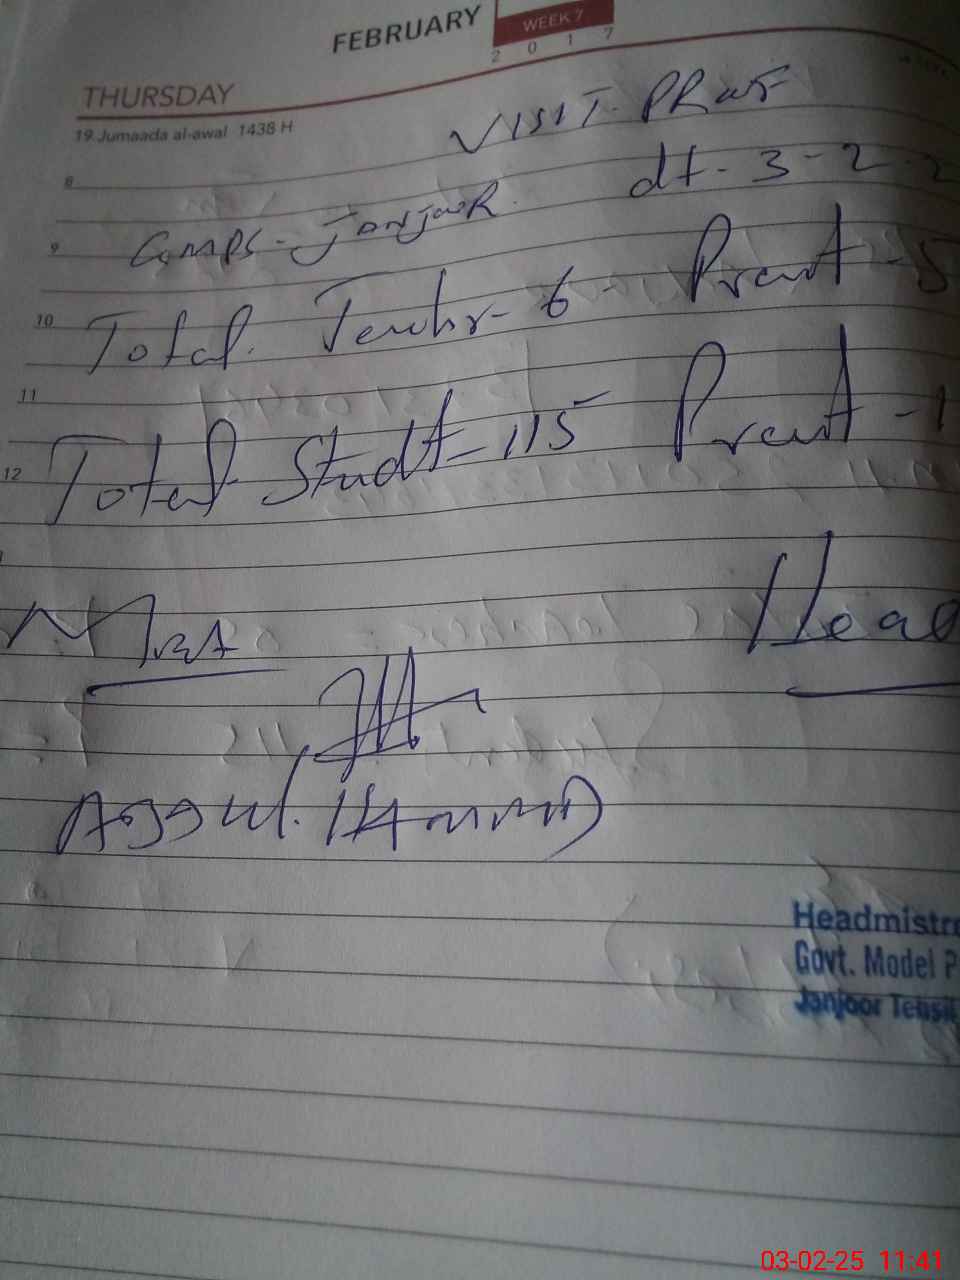 FEBRUARY
WEEK 7
2 0 1 7
THURSDAY
19 Jumaada al-awal 1438 H
VISIT. PRoof
8
dt - 3 - 2 - 2
9 GMPS - Janjoor
10 Total. Teachr - 6 - Presnt - 5
11
12 Total Studt = 115 Presnt - 1
Head
ABDUL. HAMMID
Headmistre
Govt. Model P
Janjoor Tehsil
03-02-25 11:41